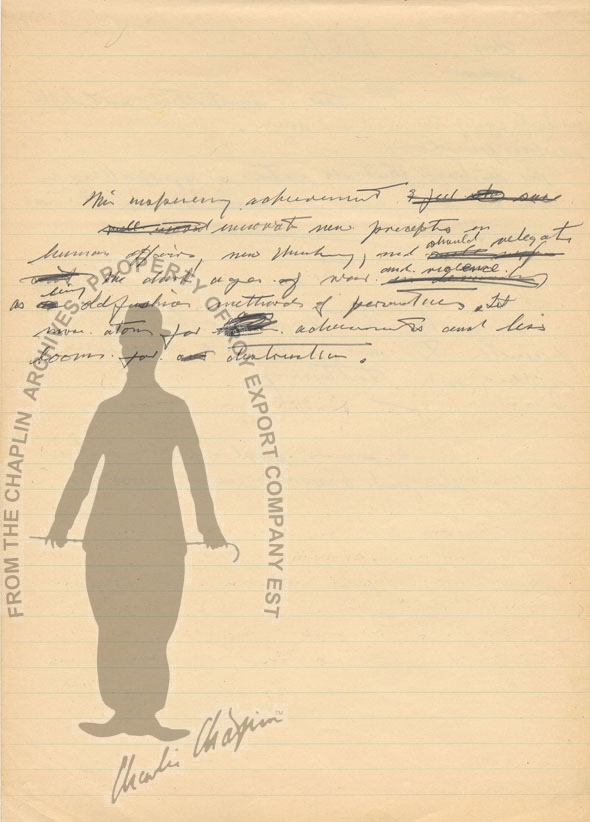 This achievement I feel sure
new precepts in
human affairs, new thinking, and should relegate
the dark ages of war and violence
as being oldfashion methods of Let
more atoms for achievements and less
booms for destruction.
FROM THE CHAPLIN ARCHIVES. PROPERTY OF ROY EXPORT COMPANY EST
Charlie Chaplin™